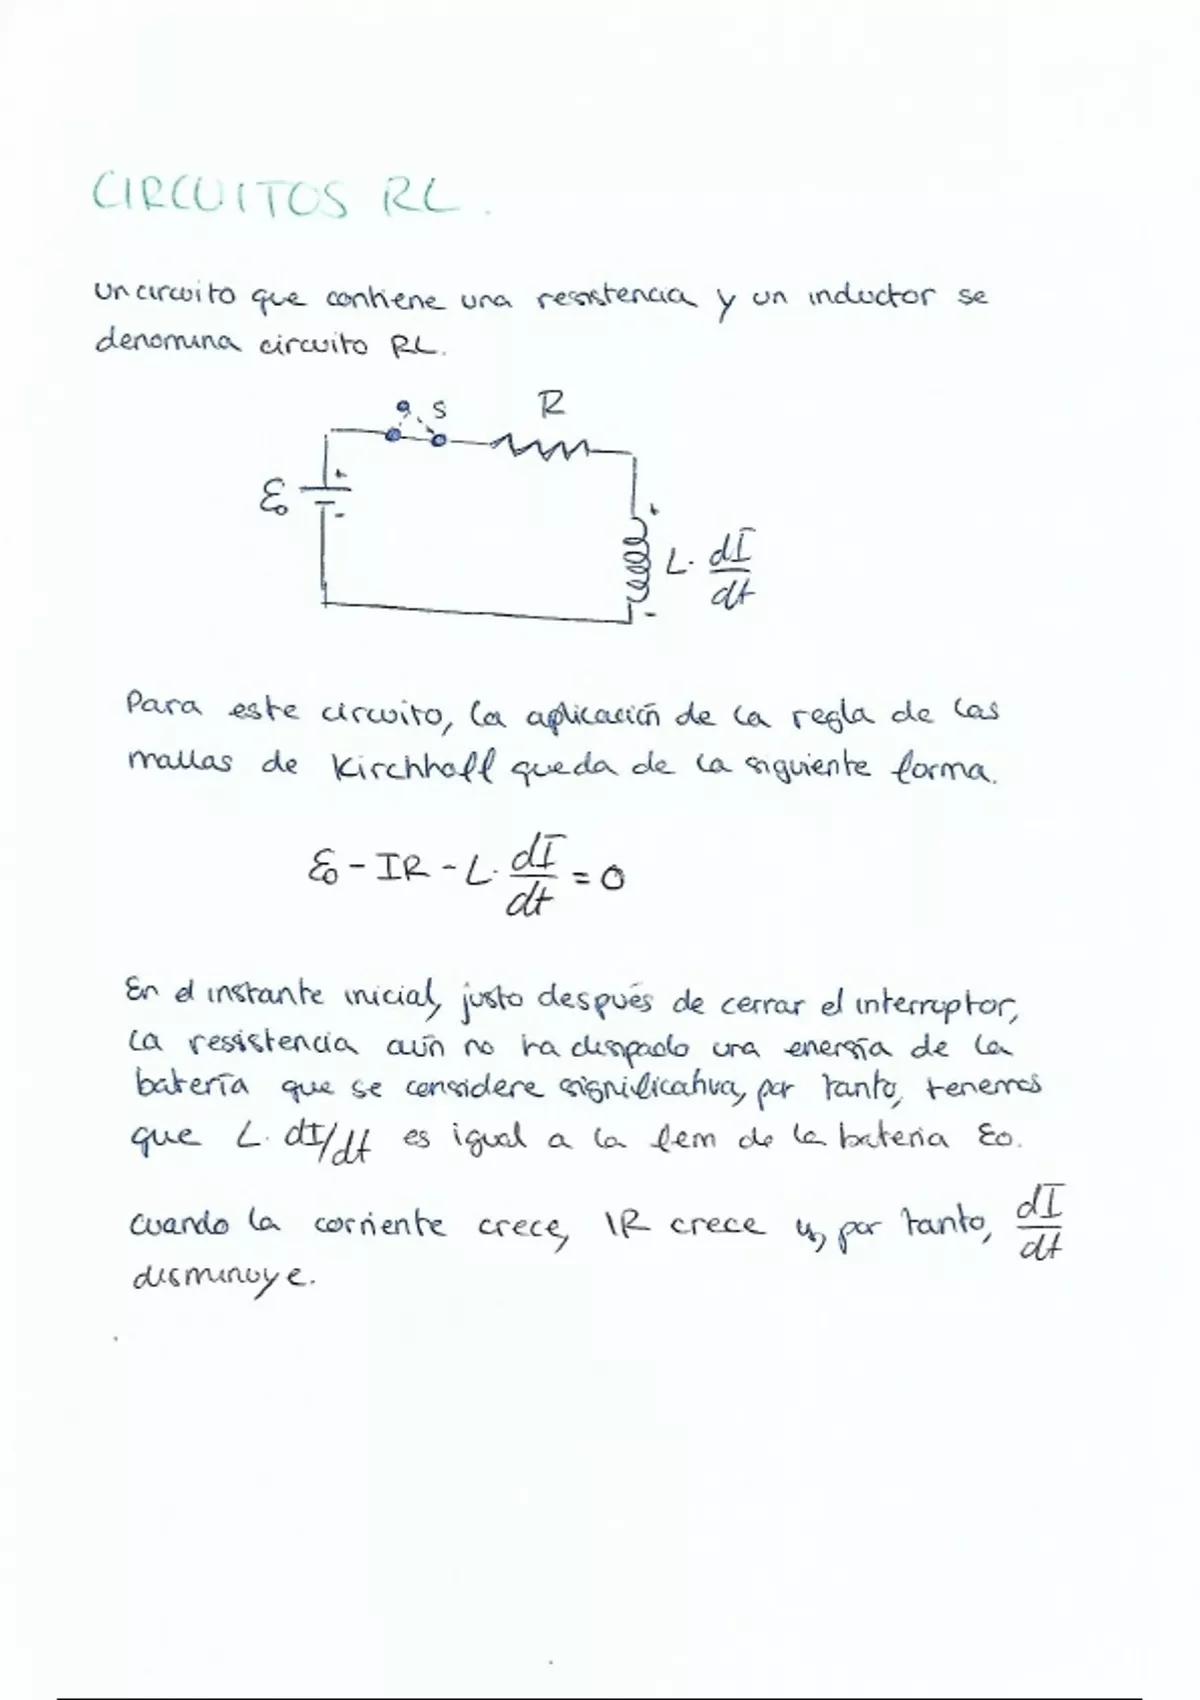 CIRCUITOS RL.
Un circuito que contiene una resistencia y un inductor se
denomina circuito RL.
S R
+
ε₀
-
+
L· dI/dt
-
Para este circuito, la aplicación de la regla de las
mallas de Kirchhoff queda de la siguiente forma.
ε₀ - IR - L· dI/dt = 0
En el instante inicial, justo después de cerrar el interruptor,
la resistencia aún no ha disipado una energía de la
batería que se considere significativa, por tanto, tenemos
que L· dI/dt es igual a la fem de la bateria ε₀.
Cuando la corriente crece, IR crece y, por tanto, dI/dt
disminuye.